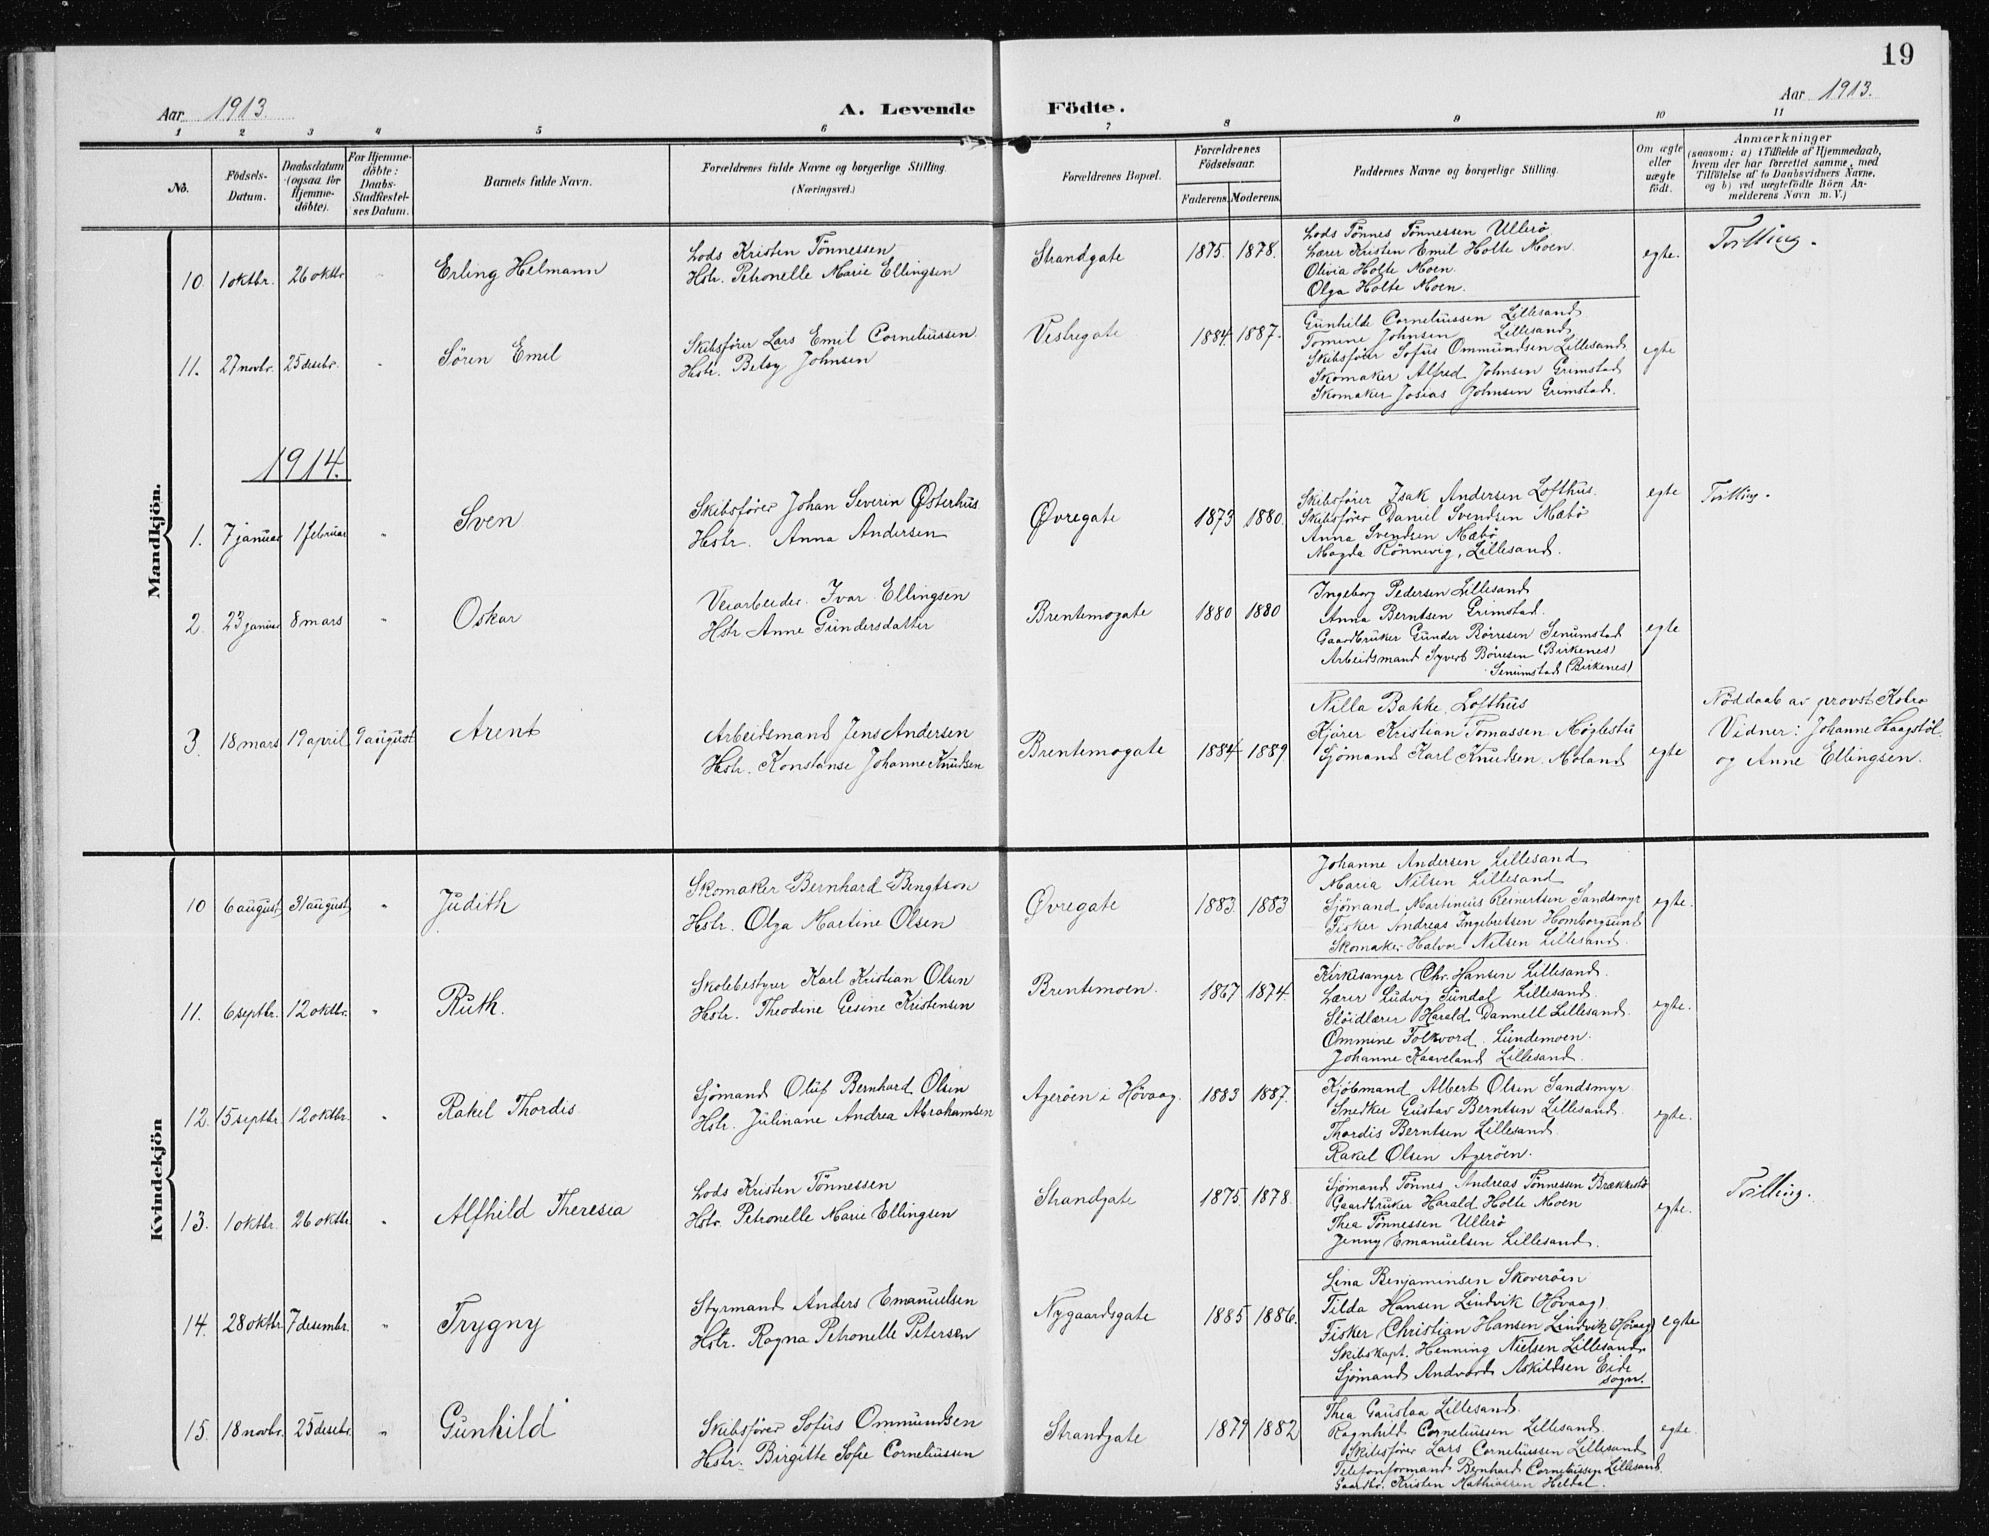 19
Aar 1913. A. Levende Födte. Aar 1913.
1 2 3 4 5 6 7 8 9 10 11
No. Födsels-Datum. Daabsdatum (ogsaa for Hjemme-döbte). For Hjemme-döbte: Daabs-Stadfæstel-ses Datum. Barnets fulde Navn. Forældrenes fulde Navne og borgerlige Stilling. (Næringsvei.) Forældrenes Bopæl. Forældrenes Födselsaar. Faderens. Moderens. Faddernes Navne og borgerlige Stilling. Om ægte eller uægte födt. Anmærkninger (saasom: a) i Tilfælde af Hjemmedaab, hvem der har forrettet samme, med Tilföielse af to Daabsvidners Navne, og b) ved uægtefödte Börn An-melderens Navn m. V.)
Mandkjön.
10 1 oktbr. 26 oktbr. " Erling Helmann
Lods Kristen Tönnessen
Hstr. Petronelle Marie Ellingsen
Strandgate 1875. 1878.
Lods Tönnes Tönnessen Ullerö
Lærer Kristen Emil Holte Moen.
Olivia Holte Moen.
Olga Holte Moen.
egte. Tvilling.
11. 27 novbr. 25 desbr. " Sören Emil
Skibsfører Lars Emil Corneliussen
Hstr. Betsy Johnsen
Vestregate 1884. 1887.
Gunhilde Corneliussen Lillesand
Tomine Johnsen Lillesand
Skibsfører Sofus Ommundsen Lillesand
Skomaker Alfred Johnsen Grimstad
Skomaker Josias Johnsen Grimstad.
egte
1914.
1. 7 januar 1 februar " Sven
Skibsfører Johan Severin Østerhus
Hstr. Anna Andersen
Øvregate 1873 1880.
Skibsfører Isak Andersen Lofthus.
Skibsfører Daniel Svendsen Mæbø
Anna Svendsen Mæbø
Magda Rönnevig, Lillesand.
egte Tvilling.
2. 23 januar 8 mars " Oskar
Veiarbeider Ivar Ellingsen
Hstr. Anne Gundersdatter
Brentemogate 1880 1880
Ingeborg Pedersen Lillesand
Anna Berntsen Grimstad.
Gaardbruker Gunder Börresen Senumstad
Arbeidsmand Syvert Börresen (Birkenes)
Senumstad (Birkenes)
egte
3. 18 mars 19 april 9 august Arent
Arbeidsmand Jens Andersen
Hstr. Konstanse Johanne Knudsen
Brentemogate 1884 1889
Nilla Bakke, Lofthus
Kjører Kristian Tomassen Møglestu
Sjömand Karl Knudsen. Moland
egte
Nøddaab av provst Kobro
Vidner: Johanne Haagstøl
og Anne Ellingsen.
Kvindekjön
10 6 august 31 august " Judith
Skomaker Bernhard Bengtson
Hstr. Olga Martine Olsen
Øvregate 1883. 1883
Johanne Andersen Lillesand
Maria Nilsen Lillesand
Sjömand Martinius Reinertsen Sandsmyr
Fisker Andreas Ingebretsen Homborgsund
Skomaker Halvor Nilsen Lillesand.
egte.
11. 6 septbr. 12 oktbr. " Ruth.
Skolebestyrer Karl Kristian Olsen
Hstr. Theodine Gesine Kristensen
Brentemoen. 1867 1874.
Kirkesanger Chr. Hansen Lillesand.
Lærer Ludvig Sundal Lillesand.
Slöidlærer Harald Dannell Lillesand.
Ommine Folkvord Lundemoen.
Johanne Kaaveland Lillesand.
egte.
12. 15 septbr. 12 oktbr. " Rakel Thordis.
Sjömand Oluf Bernhard Olsen
Hstr. Julinane Andrea Abrahamsen
Agerøen i Høvaag. 1883 1887.
Kjöbmand Albert Olsen Sandsmyr
Snedker Gustav Berntsen Lillesand.
Thordis Berntsen Lillesand.
Rakel Olsen Agerøen.
egte.
13. 1 oktbr. 26 oktbr. " Alfhild Theresia
Lods Kristen Tönnessen
Hstr. Petronelle Marie Ellingsen
Strandgate 1875. 1878.
Sjömand Tönnes Andreas Tönnessen Brækkestö
Gaardbruker Harald Holte Moen
Thea Tönnessen Ullerö
Jenny Emanuelsen Lillesand.
egte. Tvilling.
14. 28 oktbr. 7 desembr. " Trygny
Styrmand Anders Emanuelsen
Hstr. Ragna Petronelle Petersen
Nygaardsgate 1885 1886.
Lina Benjaminsen Skoveröen
Tilda Hansen Lindvik (Høvaag).
Fisker Christian Hansen Lindvik (Høvaag)
Skibskapt. Henning Nielsen Lillesand.
Sjömand Andvord Askildsen Eide
sogn.
egte
15. 18 novbr. 25 desebr. " Gunhild
Skibsfører Sofus Ommundsen
Hstr. Birgitte Sofie Corneliussen
Strandgate 1879 1882
Thea Gaustaa Lillesand.
Ragnhild Corneliussen Lillesand.
Skibsfører Lars Corneliussen Lillesand
Telefonformand Bernhard Corneliussen Lillesand.
Gaardbr. Kristen Mathiassen Heldal.
egte.